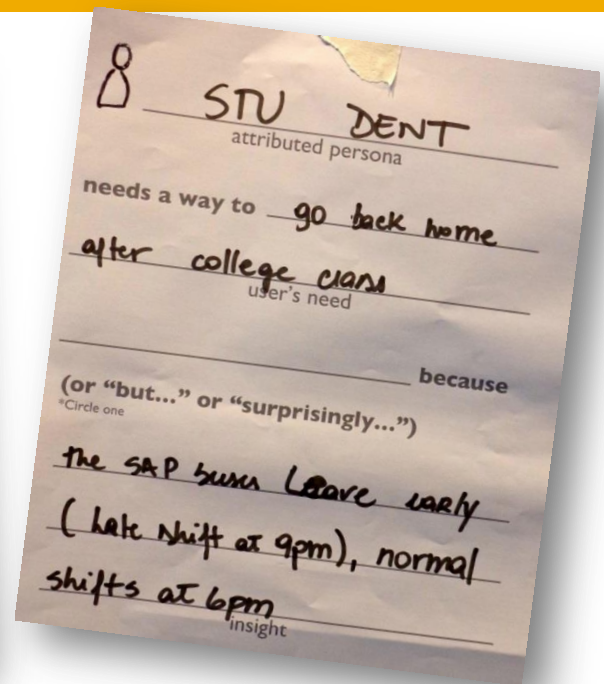 STU DENT
attributed persona
needs a way to go back home
after college class
user's need
because
(or “but...” or “surprisingly...”)
*Circle one
the SAP buses leave early
(late shift at 9pm), normal
shifts at 6pm
insight